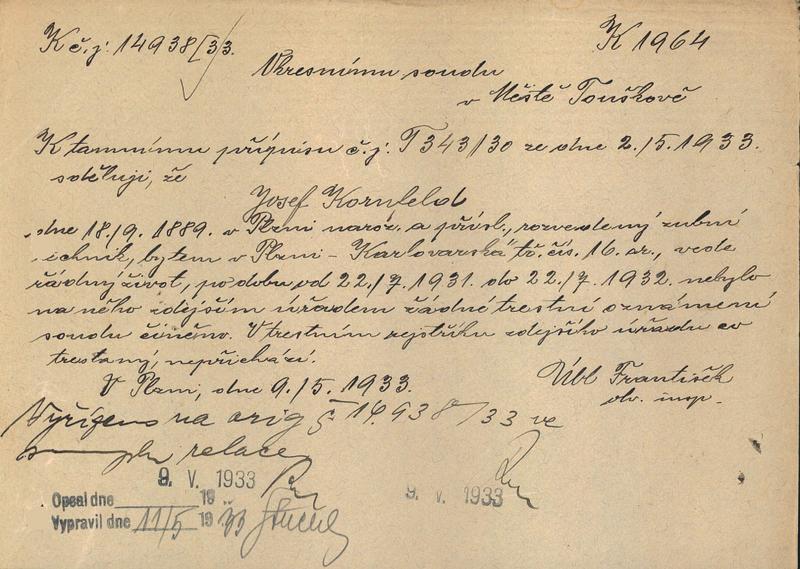 K č.j. 14938/33.
K 1964
Okresnímu soudu
v Městě Touškově
K tamnímu přípisu č.j. T 343/30 ze dne 2./5. 1933.
sděluji, že
Josef Kornfeld
dne 18./9. 1889. v Plzni naroz. a přísl., rozvedený zubní
technik, bytem v Plzni - Karlovarská tř. čís. 16. or., vede
řádný život, po dobu od 22./7. 1931. do 22./7. 1932. nebylo
na něho zdejším úřadem žádné trestní oznámení
soudu činěno. V trestním rejstříku zdejšího úřadu co
trestaný, nepřichází.
V Plzni, dne 9./5. 1933.
Übl František
obv. insp.
Vyřízeno na orig č 14.938/33 ve
smyslu relace
9. V. 1933
9. V. 1933
Opsal dne 19
Vypravil dne 11/5 19 33